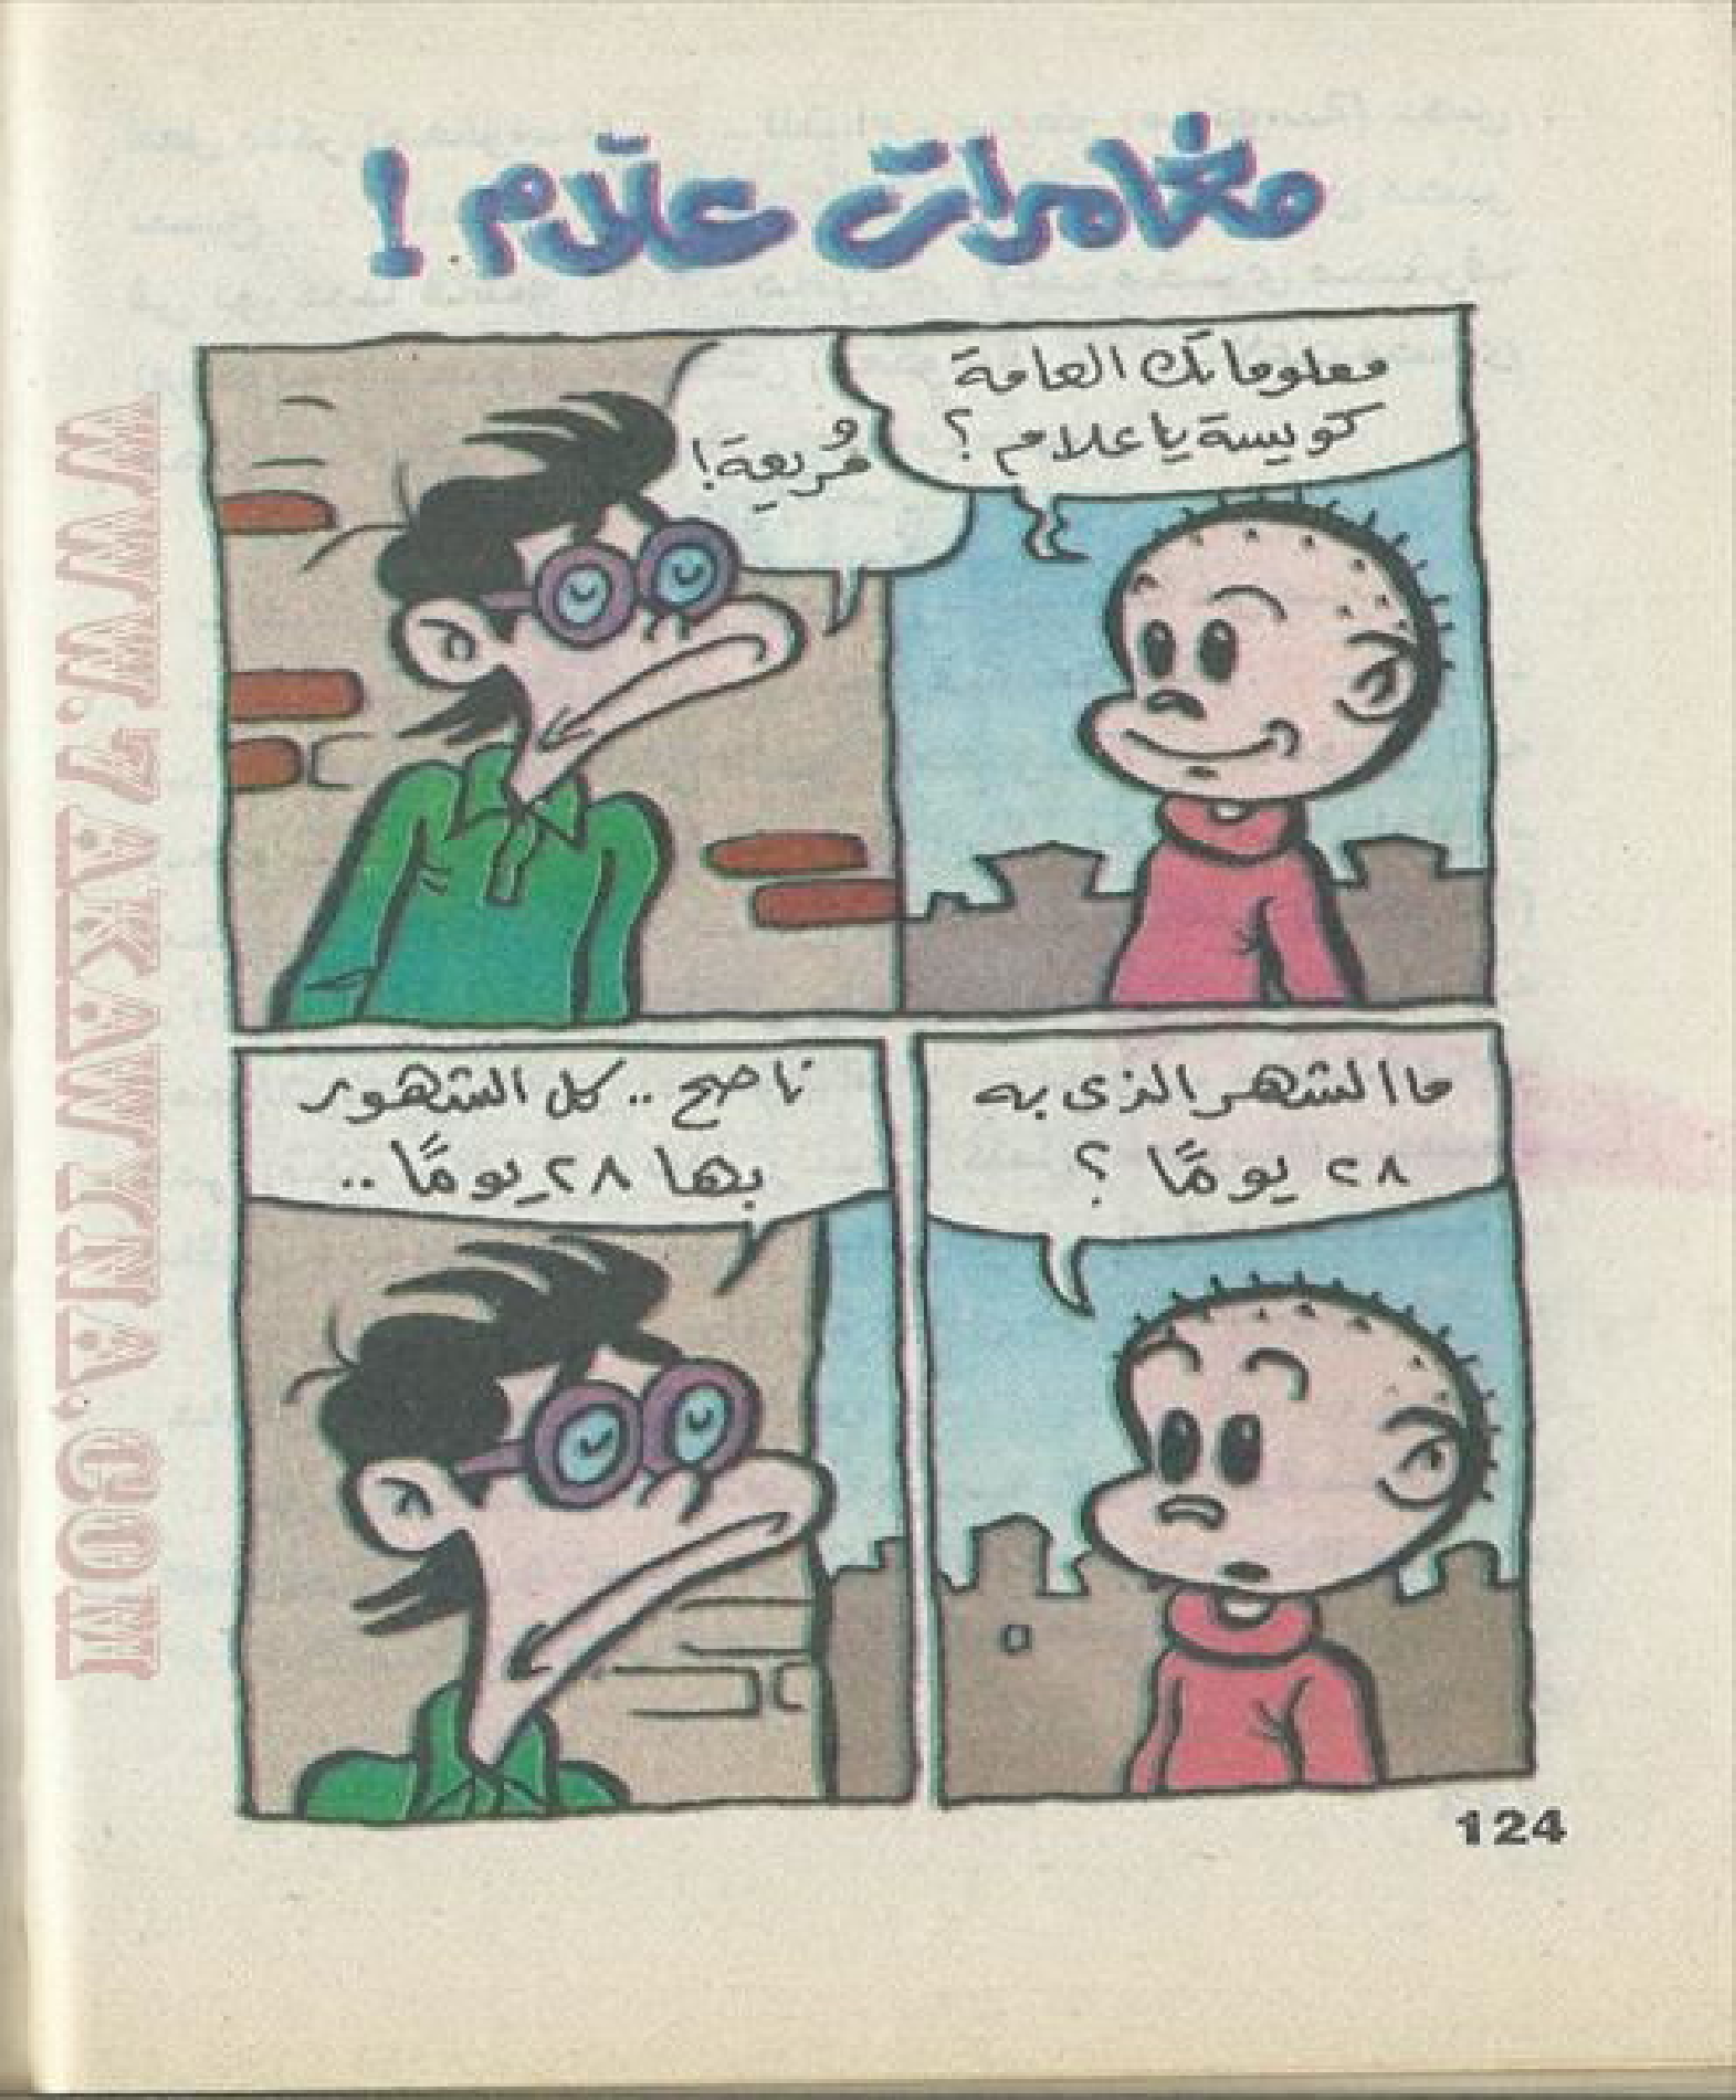 مغامرات علّام !
معلوماتك العامة
كويسة يا علام ؟
مُريعة !
ما الشهر الذى به
٢٨ يومًا ؟
ناصح .. كل الشهور
بها ٢٨ يومًا ..
124
WWW.7AKAWINA.COM